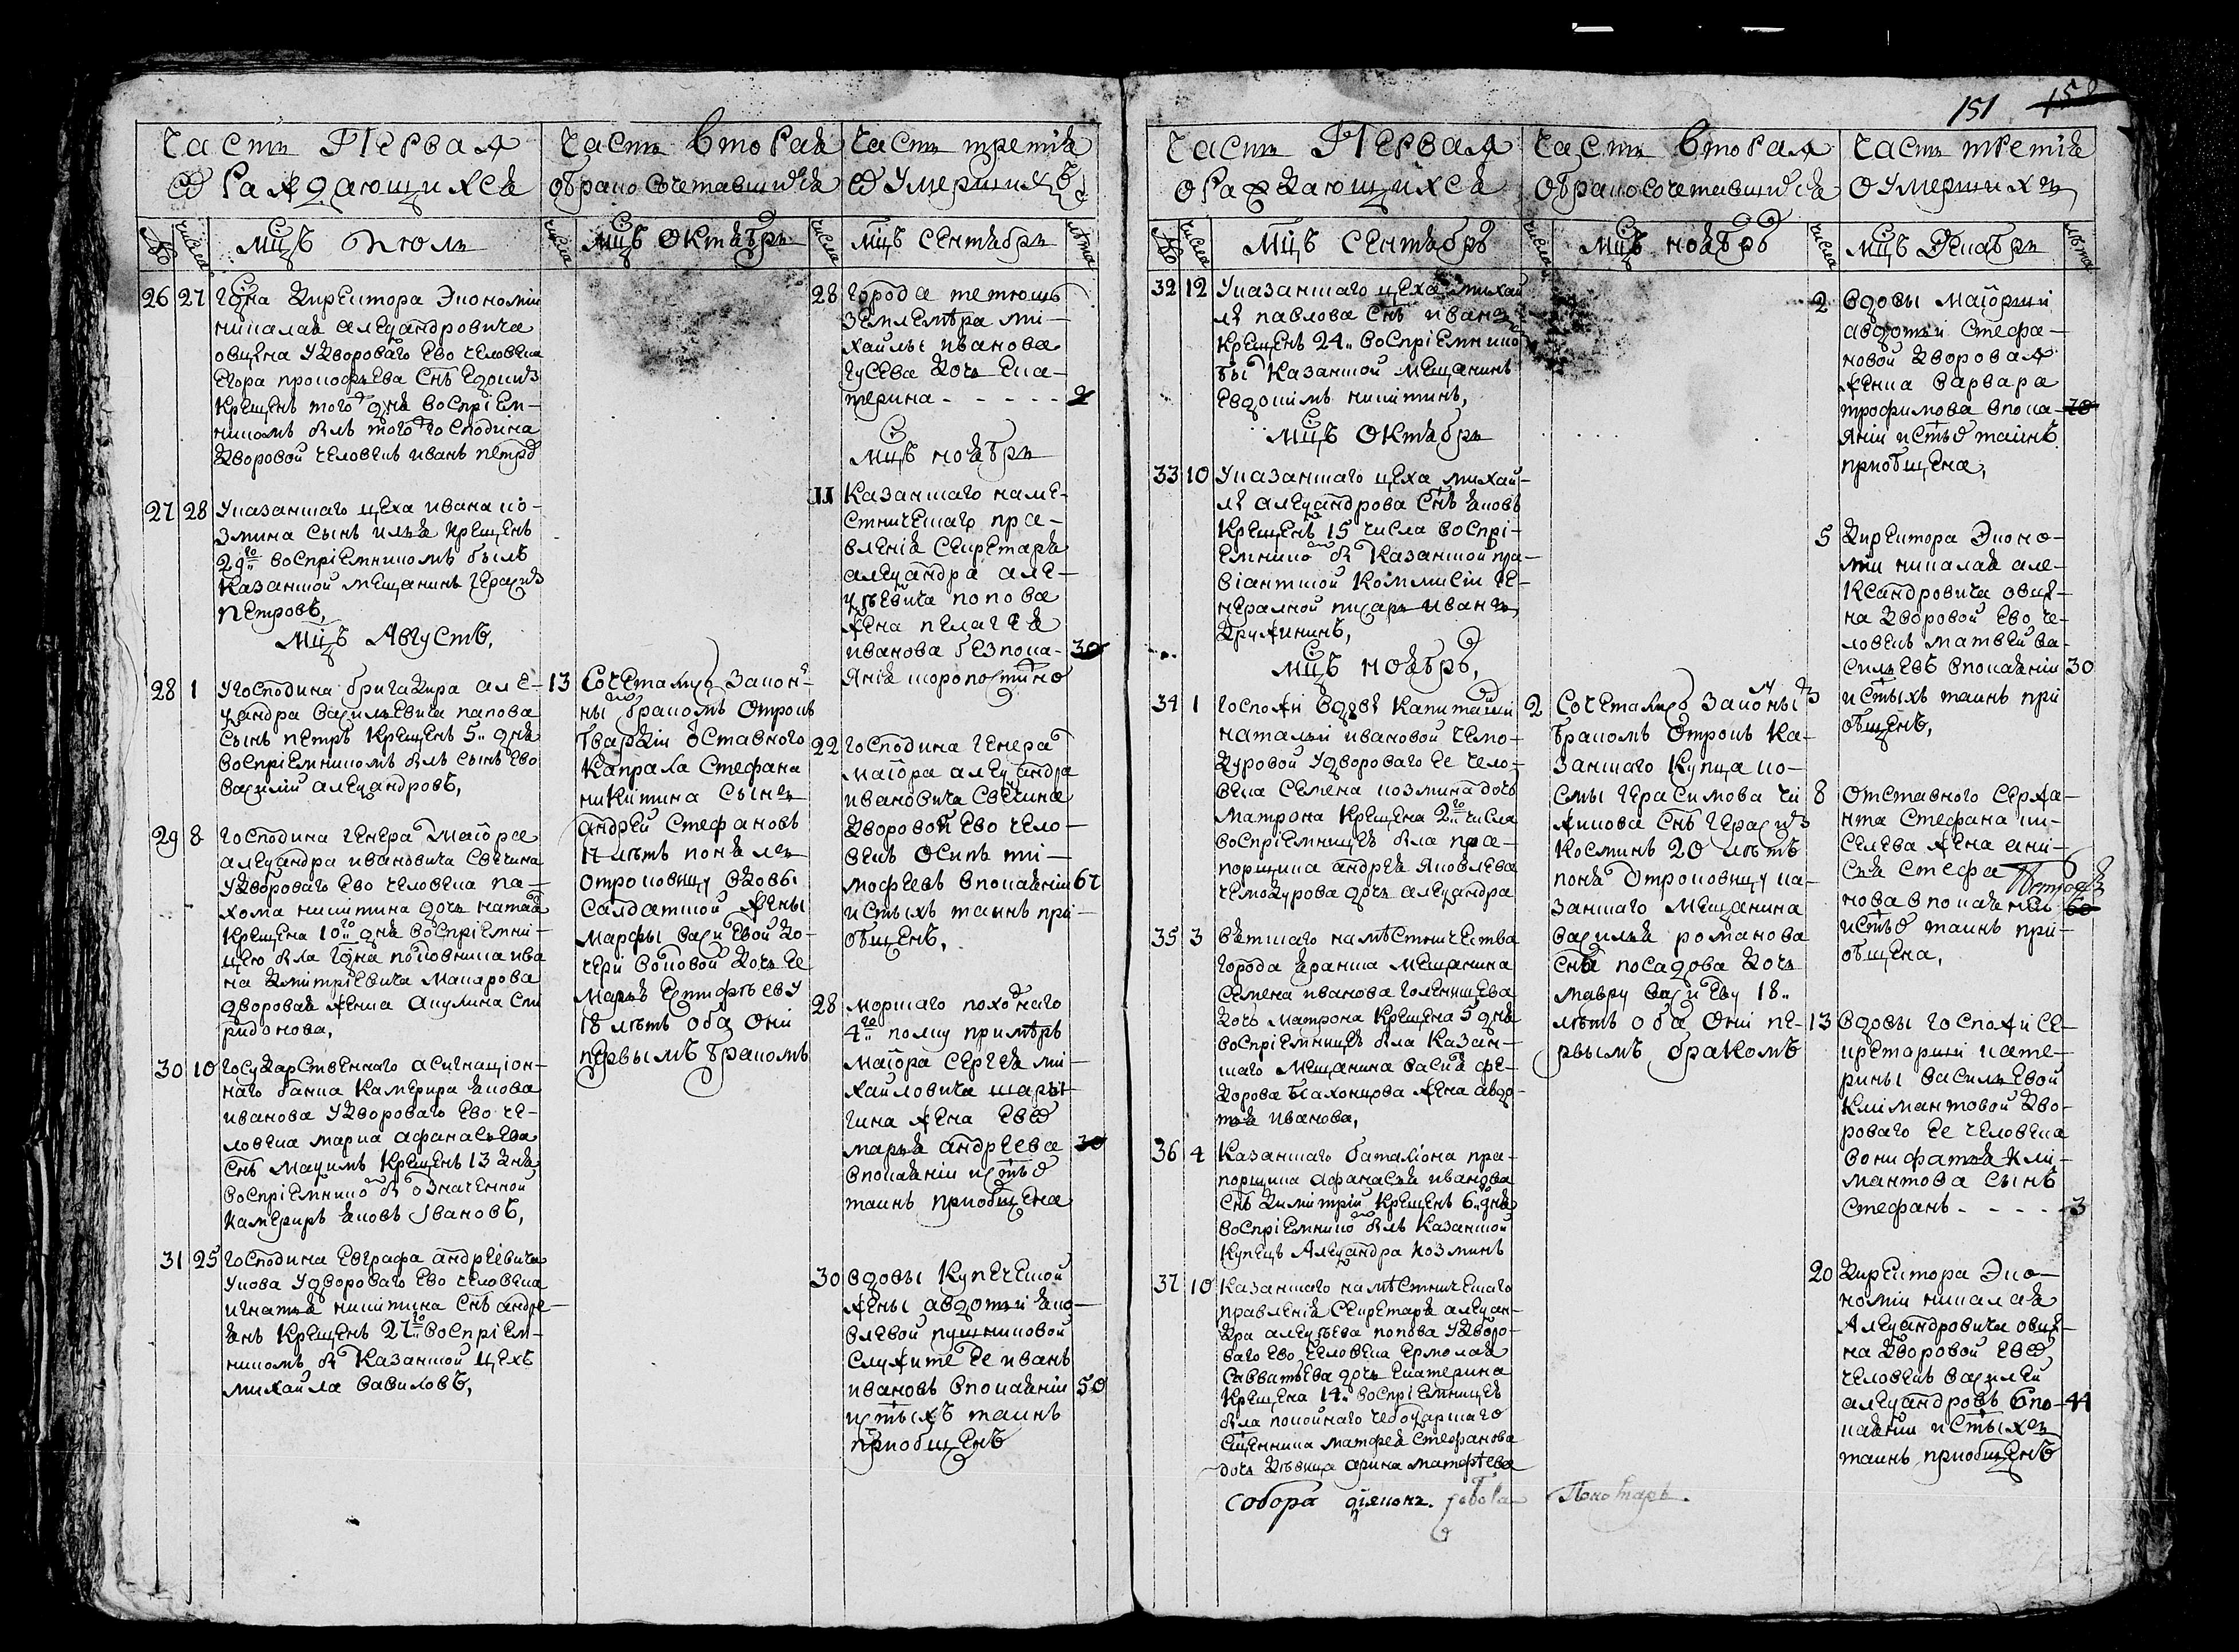 151 152
часть Первая
О Раждающихся
часть вторая
обракосочетавшихся
часть третія
О Умершихъ
№
числа
мцъ Июль
числа
мцъ октябрь
числа
мцъ сентябрь
лѣта
26 27 Гдна Директора Экономіи
николая алеѯандровича
овцына удвороваго ево человека
егора прокофьева снъ
крещенъ того дня воспріем-
никомъ былъ того господина
дворовой человекъ иванъ петро
27 28 Указанскаго цеха ивана ко-
змина сынъ илья крещенъ
29го воспріемникомъ былъ
казанской мещанинъ
петровъ,
мцъ Августъ,
28 1 Угосподина бригадира але-
ѯандра васильевича папова
сынъ петръ крещенъ 5 дня
воспріемникомъ былъ сынъ ево
василий алеѯандровъ,
29 8 господина генера маіора
алеѯандра ивановича свечина
удвороваго ево человека па-
хома никитина дочь
крещена 10го дня воспріемни-
цею была гдна полковника ива
на дмитріевича макарова
дворовая женка акулина спи
ридонова,
30 10 государственнаго асигнаціон-
наго банка камерира якова
иванова удвороваго ево че-
ловека марка афанасьева
снъ маѯимъ крещенъ 13 дня
воспріемнико бы означенной
камериръ яковъ Ивановъ,
31 25 господина евграфа андреевича
удвороваго ево человека
игнатья никитина снъ андре-
янъ крещенъ 27го воспріем-
никомъ бы казанской цехъ
михайла вавиловъ,
13 сочетались закон-
ны бракомъ отрокъ
гвардіи отставного
капрала стефана
никитина сынъ
андрей стефановъ
17 лѣтъ поня ле
отроковицу вдовы
салдатской жены
марфы васи евой до-
чери
марья ефьеву
18 лѣтъ оба они
первымъ бракомъ
28 Города тетюшъ
землемѣра ми-
хайлы иванова
гусева дочь ека-
терина - - - - - 2
мцъ ноябрь
11 казанскаго наме-
стническаго пра-
вленія секретаря
алеѯандра але-
ѯѣевича попова
жена пелагея
иванова безпока- 30
янія
22 господина генера
маіора алеѯандра
ивановича свечина
дворовой ево чело-
векъ осипъ ти-
мофеевъ впокаяніи 67
истыхъ таинъ прі-
общенъ,
28 морскаго похонаго
4го полку примѣръ
маіора сергея ми-
хайловича шары-
гина жена ево
марья андреева 30
впокаяніи исты
таинъ приобщена
30 вдовы купеческой
жены авдотьи яко-
влевой пушниковой
служите ее иванъ
ивановъ впокаяніи 50
истыхъ таинъ
приобщенъ
часть Первая
ораждающихся
часть вторая
обракосочетавшихся
часть третія
оумершихъ
№
числа
мцъ сентябрь
числа
мцъ ноябрь
числа
мцъ Декабрь
лѣта
32 12 Указанскаго цеха михай
лы павлова снъ иванъ
крещенъ 24 воспріемнико
бы казанской мещанинъ
евдокимъ никитинъ,
мцъ октябрь
33 10 Указанскаго цеха михай-
лы алеѯандрова снъ яковъ
крещенъ 15 числа воспрі-
емнико бы казанской про-
віантской коммисіи ге-
неральной писарь иванъ
дружининъ,
мцъ ноябрь,
34 1 госпожи вдовы капитанши
натальи ивановой чемо-
дуровой удвороваго ее чело-
века семена козмина дочь
матрона крещена 2го числа
воспріемницъ была пра-
порщика андрея яковлева
чемодурова дочь алеѯандра
35 3 вятскаго намѣстничества
города яранска мещанина
семена иванова голенищева
дочь матрона крещена 5 дня
воспріемницъ была казан-
скаго мещанина васи фе-
дорова жена авдо-
тья иванова,
36 4 казанскаго баталіона пра-
порщика афанасья иванова
снъ димитрій крещенъ 6 дня
воспріемнико былъ казанской
купецъ Алеѯандра козминъ
37 10 казанскаго намѣстническаго
правленія секретаря алеѯан-
дра алеѯѣева попова удворо-
ваго ево человека ермолая
савватѣева дочь екатерина
крещена 14 воспріемницъ
была покойнаго чебоѯарскаго
сщенника матфея стефанова
дочь дѣвица арина матфѣева
собора діяконъ Пономарь
2 сочетались законны
бракомъ отрокъ ка-
занскаго купца ко-
смы герасимова чи
жикова снъ герасим
косминъ 20 лѣтъ
поня отроковицу ка-
занскаго мещанина
василья романова
сна посадова дочь
мавру васи еву 18
лѣтъ оба они пе-
рвымъ бракомъ
2 вдовы маіорши
авдотьи стефа-
новой дворовая
женка варвара
трофимова впока- 70
яніи исты таинъ
приобщена,
5 Директора эконо-
міи николая але-
ксандровича овцы-
на дворовой ево че-
ловекъ матвей ва-
сильевъ впокаяніи 30
истыхъ таинъ прі
общенъ,
8 отставного сержа-
нта стефана ки-
селева жена ани-
сья стефа
нова впокаяніи 60
исты таинъ при-
общена,
13 вдовы госпожи се-
кретарши кате-
рины васильевой
климантовой дво-
роваго ее человека
вонифатья кли-
мантова сынъ
стефанъ - - - - - 3
20 Директора эко-
номіи николая
Алеѯандровича овцы-
на дворовой ево
человекъ василей
алеѯандровъ впо- 44
каяніи истыхъ
таинъ приобщенъ